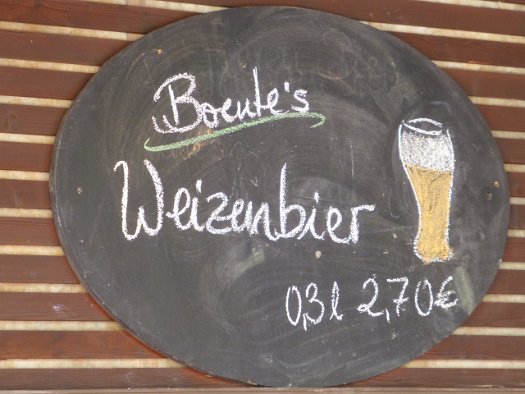 Boente's
Weizenbier
0,3l 2,70€